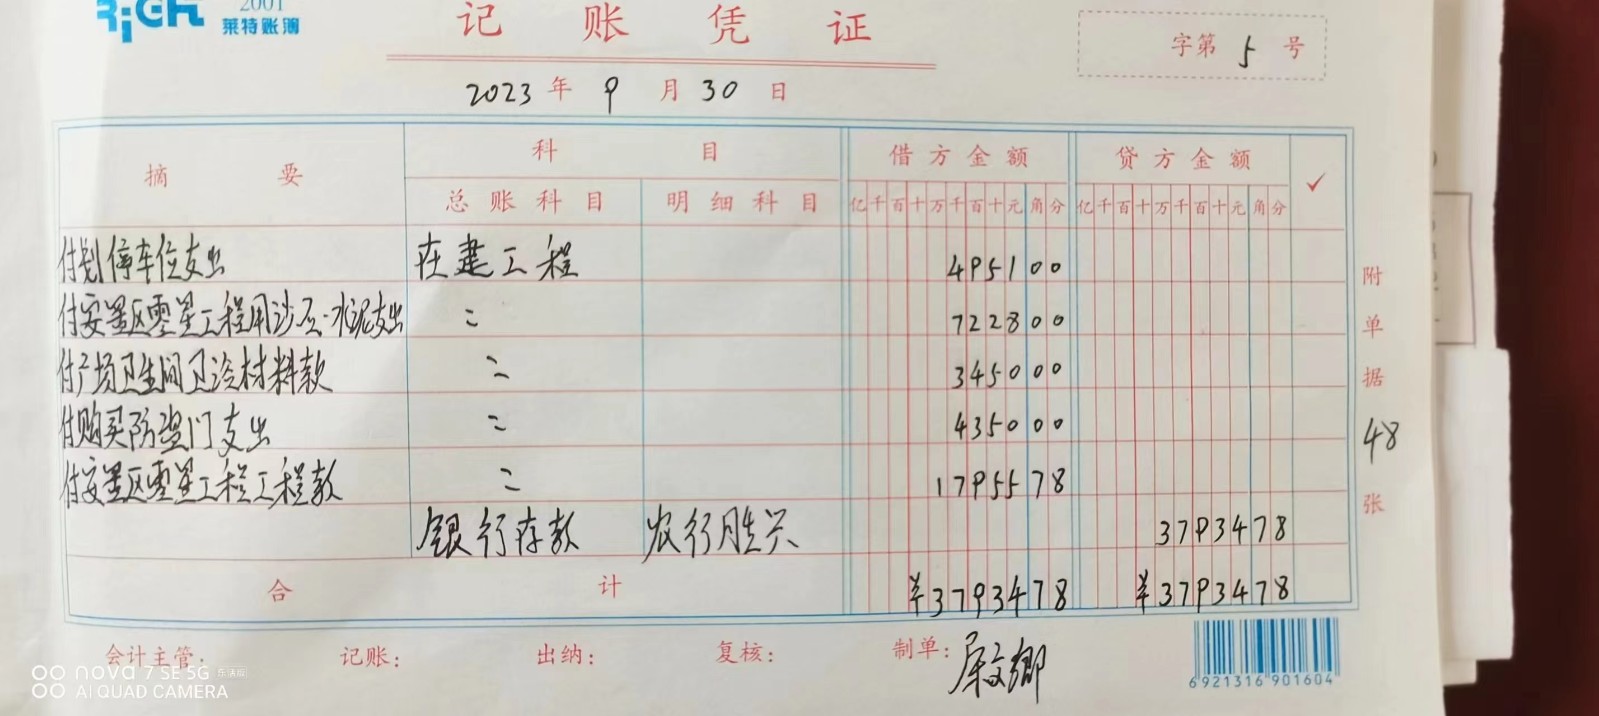 RiGHT 2001
莱特账簿
记账凭证
字第 5 号
2023 年 9 月 30 日
摘要 科目 借方金额 贷方金额 ✓
总账科目 明细科目 亿千百十万千百十元角分 亿千百十万千百十元角分
付划停车位支出 在建工程 495100
付安置区零星工程用沙石·水泥支出 〃 722800
付广场卫生间卫浴材料款 〃 345000
付购买防盗门支出 〃 435000
付安置区零星工程工程款 〃 1795578
银行存款 农行胜兴 3793478
合计 ¥3793478 ¥3793478
附单据 48 张
会计主管: 记账: 出纳: 复核: 制单:
6921316901604
nova 7 SE 5G
AI QUAD CAMERA